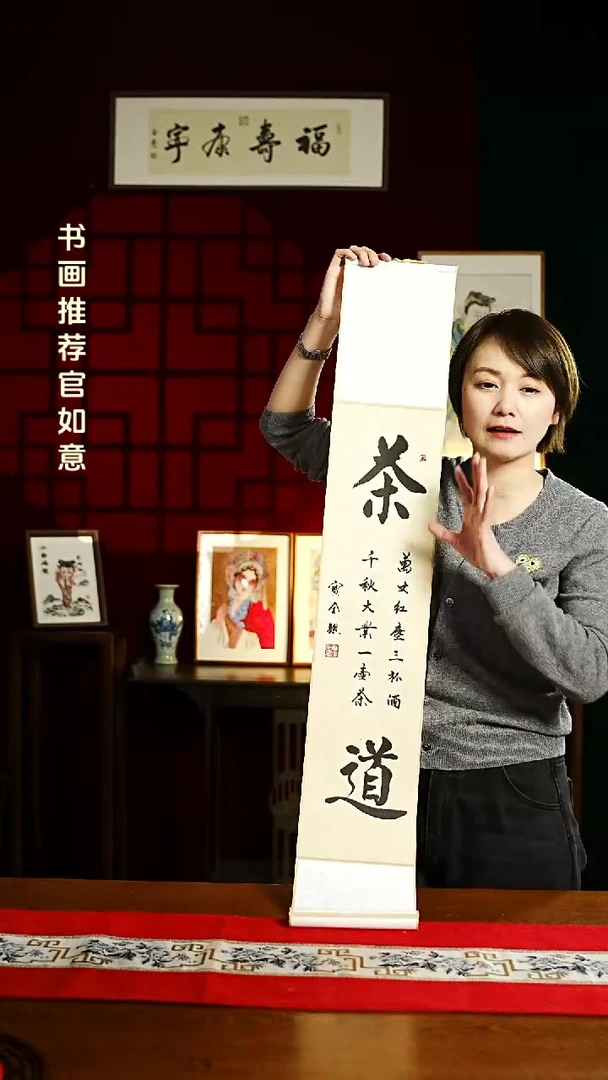 福壽康寧
书画推荐官如意
茶
萬丈紅塵三杯酒
千秋大業一壺茶
道